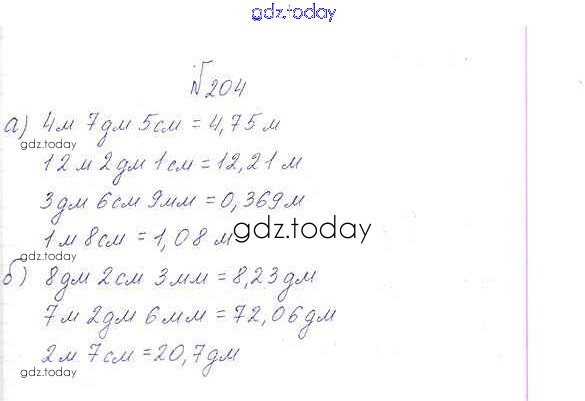 gdz.today
№204
а) 4м 7дм 5см = 4,75м
gdz.today
12 м 2 дм 1 см = 12,21 м
3дм 6см 9мм = 0,369м
1 м 8см = 1,08 м
gdz.today
gdz.today
б) 8дм 2см 3мм = 8,23дм
7м 2дм 6мм = 72,06дм
2м 7см = 20,7дм
gdz.today
gdz.today